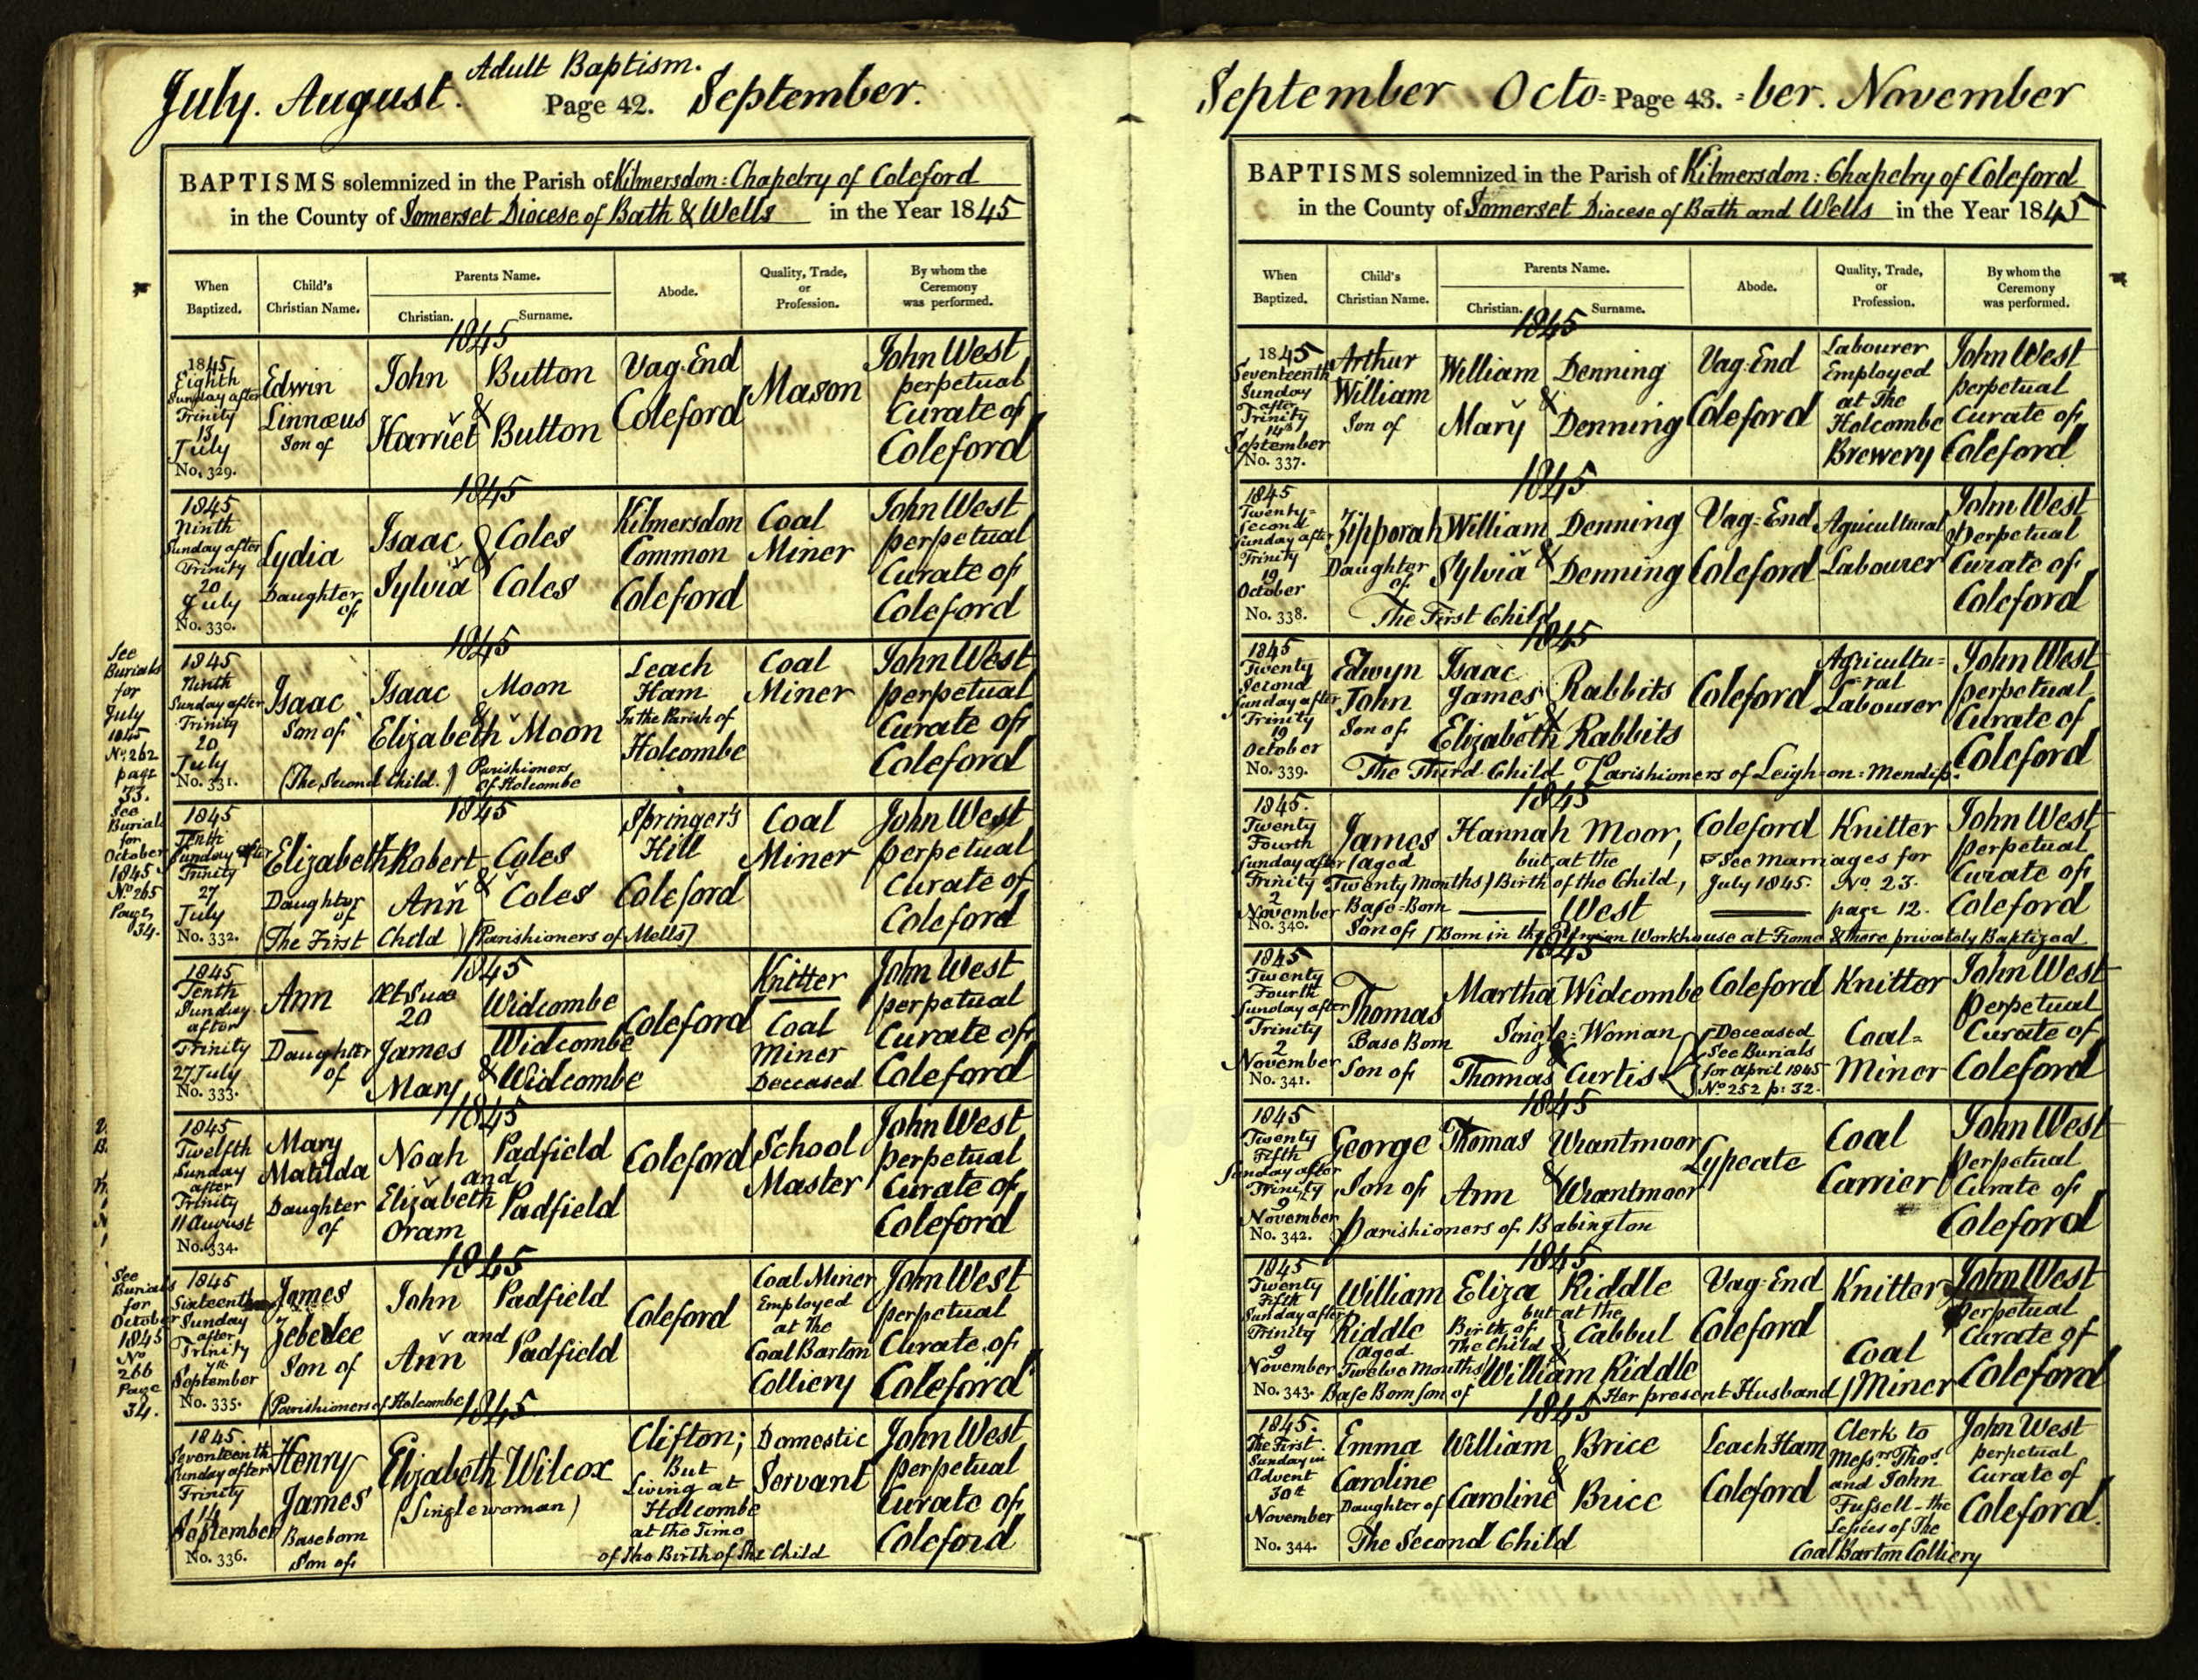 Adult Baptism.
July. August. Page 42. September.
BAPTISMS solemnized in the Parish of Kilmersdon: Chapelry of Coleford
in the County of Somerset Diocese of Bath & Wells in the Year 1845
When Baptized.
Child's Christian Name.
Parents Name.
Christian.
Surname.
Abode.
Quality, Trade, or Profession.
By whom the Ceremony was performed.
1845
1845
Eighth
Sunday after
Trinity
13
July
No. 329.
Edwin
Linnæus
Son of
John
&
Harriet
Button
Button
Vag-End
Coleford
Mason
John West
perpetual
Curate of
Coleford
1845
1845
Ninth
Sunday after
Trinity
20
July
No. 330.
Lydia
Daughter
of
Isaac
&
Sylvia
Coles
Coles
Kilmersdon
Common
Coleford
Coal
Miner
John West
perpetual
Curate of
Coleford
See
Burials
for
July
1845
No. 262
page
33.
1845
1845
Ninth
Sunday after
Trinity
20
July
No. 331.
Isaac
Son of
(The Second Child.)
Isaac
&
Elizabeth
Moon
Moon
Parishioners
of Holcombe
Leach
Ham
In the Parish of
Holcombe
Coal
Miner
John West
perpetual
Curate of
Coleford
See
Burials
for
October
1845
No. 265
Page
34.
1845
1845
Tenth
Sunday after
Trinity
27
July
No. 332.
Elizabeth
Daughter
of
(The First Child) (Parishioners of Mells)
Robert
&
Ann
Coles
Coles
Springer's
Hill
Coleford
Coal
Miner
John West
perpetual
Curate of
Coleford
1845
1845
Tenth
Sunday
after
Trinity
27 July
No. 333.
Ann
Daughter
of
Æt Suæ
20
James
&
Mary
Widcombe
Widcombe
Widcombe
Coleford
Knitter
Coal
Miner
Deceased
John West
perpetual
Curate of
Coleford
1845
1845
Twelfth
Sunday
after
Trinity
11 August
No. 334.
Mary
Matilda
Daughter
of
Noah
and
Elizabeth
Oram
Padfield
Padfield
Coleford
School
Master
John West
perpetual
Curate of
Coleford
See
Burials
for
October
1845
No
266
Page
34.
1845
1845
Sixteenth
Sunday
after
Trinity
7th
September
No. 335.
James
Zebedee
Son of
(Parishioners of Holcombe)
John
and
Ann
Padfield
Padfield
Coleford
Coal Miner
Employed
at the
Coal Barton
Colliery
John West
perpetual
Curate of
Coleford
1845
1845.
Seventeenth
Sunday after
Trinity
14
September
No. 336.
Henry
James
Baseborn
Son of
Elizabeth
(Single woman)
Wilcox
Clifton;
But
Living at
Holcombe
at the Time
of the Birth of the Child
Domestic
Servant
John West
perpetual
Curate of
Coleford
September Octo= Page 43. =ber. November
BAPTISMS solemnized in the Parish of Kilmersdon: Chapelry of Coleford
in the County of Somerset Diocese of Bath and Wells in the Year 1845
When Baptized.
Child's Christian Name.
Parents Name.
Christian.
Surname.
Abode.
Quality, Trade, or Profession.
By whom the Ceremony was performed.
1845
1845
Seventeenth
Sunday
after
Trinity
14th
September
No. 337.
Arthur
William
Son of
William
&
Mary
Denning
Denning
Vag-End
Coleford
Labourer
Employed
at the
Holcombe
Brewery
John West
perpetual
Curate of
Coleford
1845
1845
Twenty=
Second
Sunday after
Trinity
19
October
No. 338.
Zipporah
Daughter
of
The First Child
William
&
Sylvia
Denning
Denning
Vag-End
Coleford
Agricultural
Labourer
John West
Perpetual
Curate of
Coleford
1845
1845
Twenty
Second
Sunday after
Trinity
19
October
No. 339.
Edwyn
John
Son of
Isaac
James
&
Elizabeth
Rabbits
Rabbits
The Third Child Parishioners of Leigh-on-Mendip.
Coleford
Agricultu=
=ral
Labourer
John West
perpetual
Curate of
Coleford
1845
1845.
Twenty
Fourth
Sunday after
Trinity
2
November
No. 340.
James
(aged
Twenty Months)
Base-Born
Son of
Hannah Moor,
but at the
Birth of the Child,
West
(Born in the Union Workhouse at Frome & there privately Baptized
Coleford
See Marriages for
July 1845. No. 23.
page 12.
Knitter
John West
perpetual
Curate of
Coleford
1845
1845
Twenty
Fourth
Sunday after
Trinity
2
November
No. 341.
Thomas
Base Born
Son of
Martha Widcombe
Single-Woman
&
Thomas Curtis
Coleford
Deceased
See Burials
for April 1845
No. 252 p: 32.
Knitter
Coal=
Miner
John West
Perpetual
Curate of
Coleford
1845
1845
Twenty
Fifth
Sunday after
Trinity
9
November
No. 342.
George
Son of
Parishioners of Babington
Thomas
&
Ann
Wrantmoor
Wrantmoor
Lypeate
Coal
Carrier
John West
Perpetual
Curate of
Coleford
1845
1845
Twenty
Fifth
Sunday after
Trinity
9
November
No. 343.
William
Riddle
(aged
Twelve Months)
Base Born son of
Eliza Riddle
but at the
Birth of
The Child
Cabbul
&
William Riddle
(Her present Husband)
Vag-End
Coleford
Knitter
Coal
Miner
John West
Perpetual
Curate of
Coleford
1845
1845.
The First
Sunday in
Advent
30th
November
No. 344.
Emma
Caroline
Daughter of
The Second Child
William
&
Caroline
Brice
Brice
Leach Ham
Coleford
Clerk to
Messrs. Thos.
and John
Fussell-the
Lessees of The
Coal Barton Colliery
John West
perpetual
Curate of
Coleford.